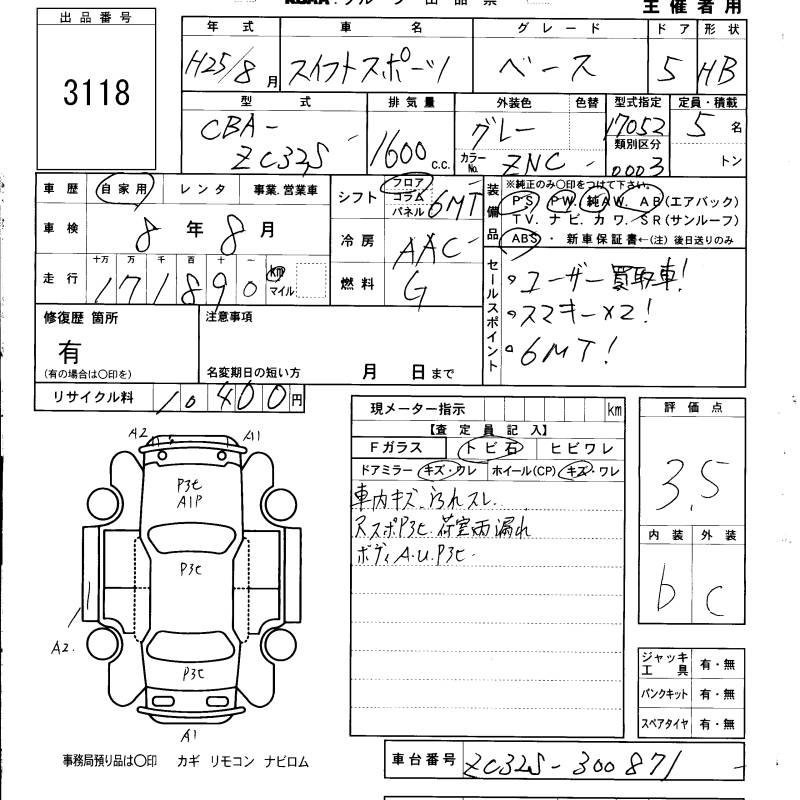 主催者用
出品番号
3118
年式 車名 グレード ドア 形状
H25/8月 スイフトスポーツ ベース 5 HB
型式 排気量 外装色 色替 型式指定 定員・積載
CBA-ZC32S 1600 c.c. グレー カラーNo. ZNC 17052 類別区分 0003 5名 トン
車歴 自家用 レンタ 事業.営業車
車検 8年8月
走行 十万 万 千 百 十 一 km マイル
171890
シフト フロア コラム パネル 6MT
冷房 AAC
燃料 G
装備品 ※純正のみ○印をつけて下さい。
PS PW. 純AW. AB(エアバック)
TV. ナビ. カワ. SR(サンルーフ)
ABS・新車保証書←(注)後日送りのみ
セールスポイント
。ユーザー買取車!
。スマキー×2!
。6MT!
修復歴 箇所 注意事項
有
(有の場合は○印を) 名変期日の短い方 月 日まで
リサイクル料 10400円
現メーター指示 km
【査定員記入】
Fガラス トビ石 ヒビワレ
ドアミラー キズ・ワレ ホイール(CP) キズ・ワレ
車内キズ.汚れスレ.
ススポP3t. 荷室雨漏れ
ボディA.U.P3t.
評価点
3.5
内装 外装
b c
A2 A1
P3t
A1P
P3t
A2.
P3t
A1
ジャッキ工具 有・無
パンクキット 有・無
スペアタイヤ 有・無
事務局預り品は○印 カギ リモコン ナビロム
車台番号 ZC32S-300871